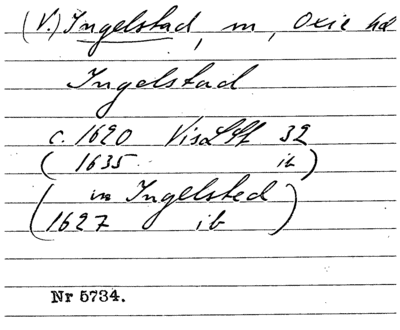 (V.) Ingelstad, in, Oxie hd
Ingelstad
c. 1620 VisLSt 32
(1635 ib)
(in Ingelsted
1627 ib)
Nr 5734.